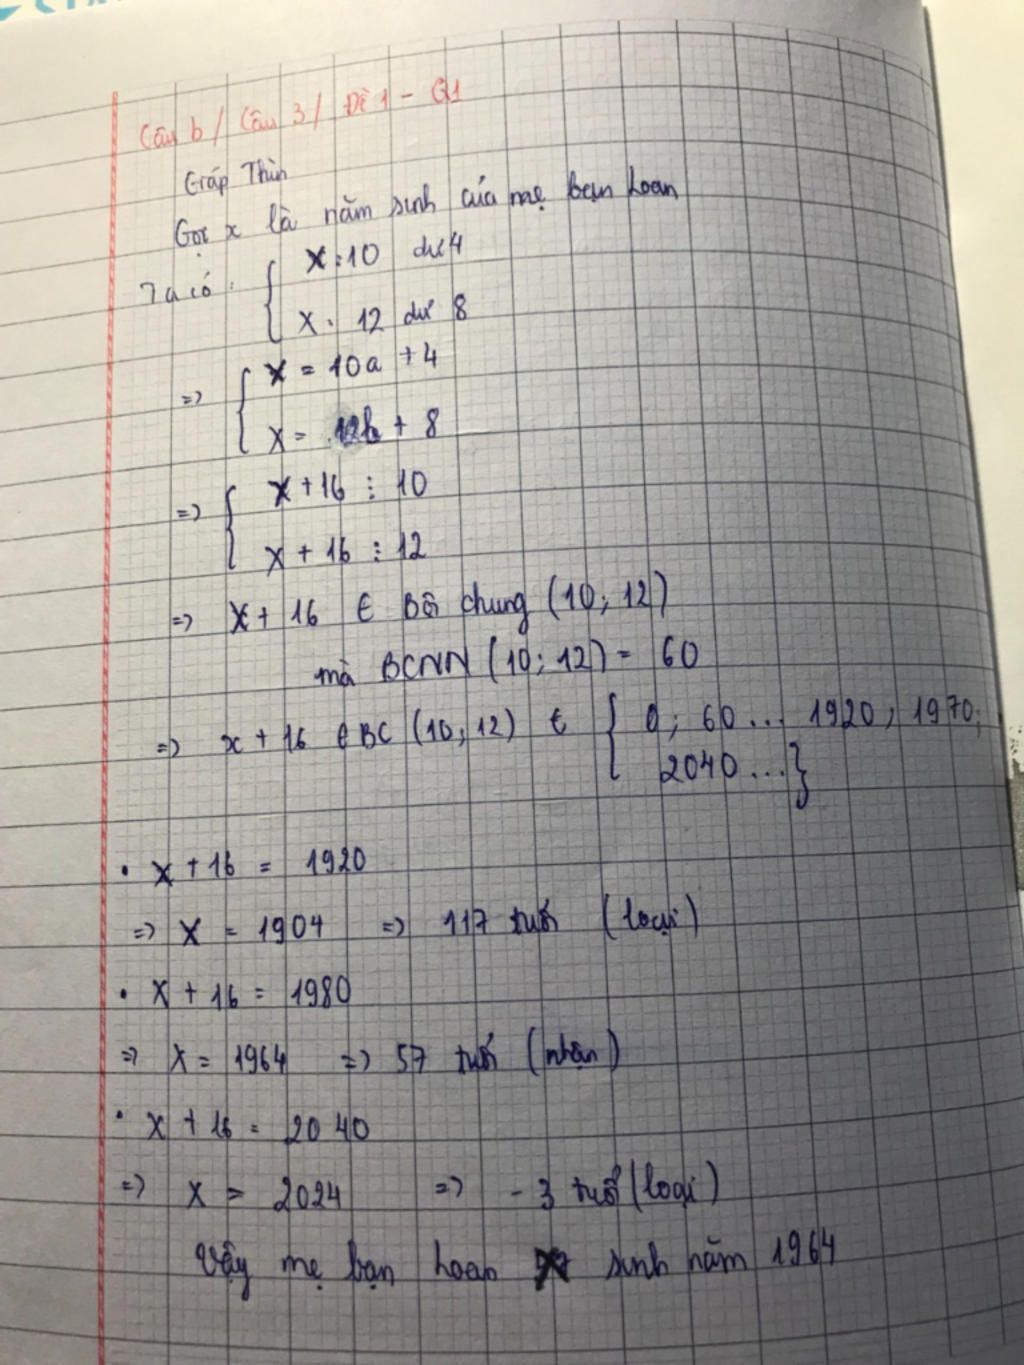 Câu b / Câu 3 / Đề 1 - Q1
Giáp Thìn
Gọi x là năm sinh của mẹ bạn Loan
Ta có: { x : 10 dư 4
x : 12 dư 8
=> { x = 10a + 4
x = 12b + 8
=> { x + 16 ⋮ 10
x + 16 ⋮ 12
=> x + 16 ∈ Bội chung (10; 12)
mà BCNN (10; 12) = 60
=> x + 16 ∈ BC (10; 12) ∈ { 0; 60 ... 1920; 1970;
2040 ...}
• x + 16 = 1920
=> x = 1904 => 117 tuổi (loại)
• x + 16 = 1980
=> x = 1964 => 57 tuổi (nhận)
• x + 16 = 2040
=> x = 2024 => - 3 tuổi (loại)
Vậy mẹ bạn Loan sinh năm 1964